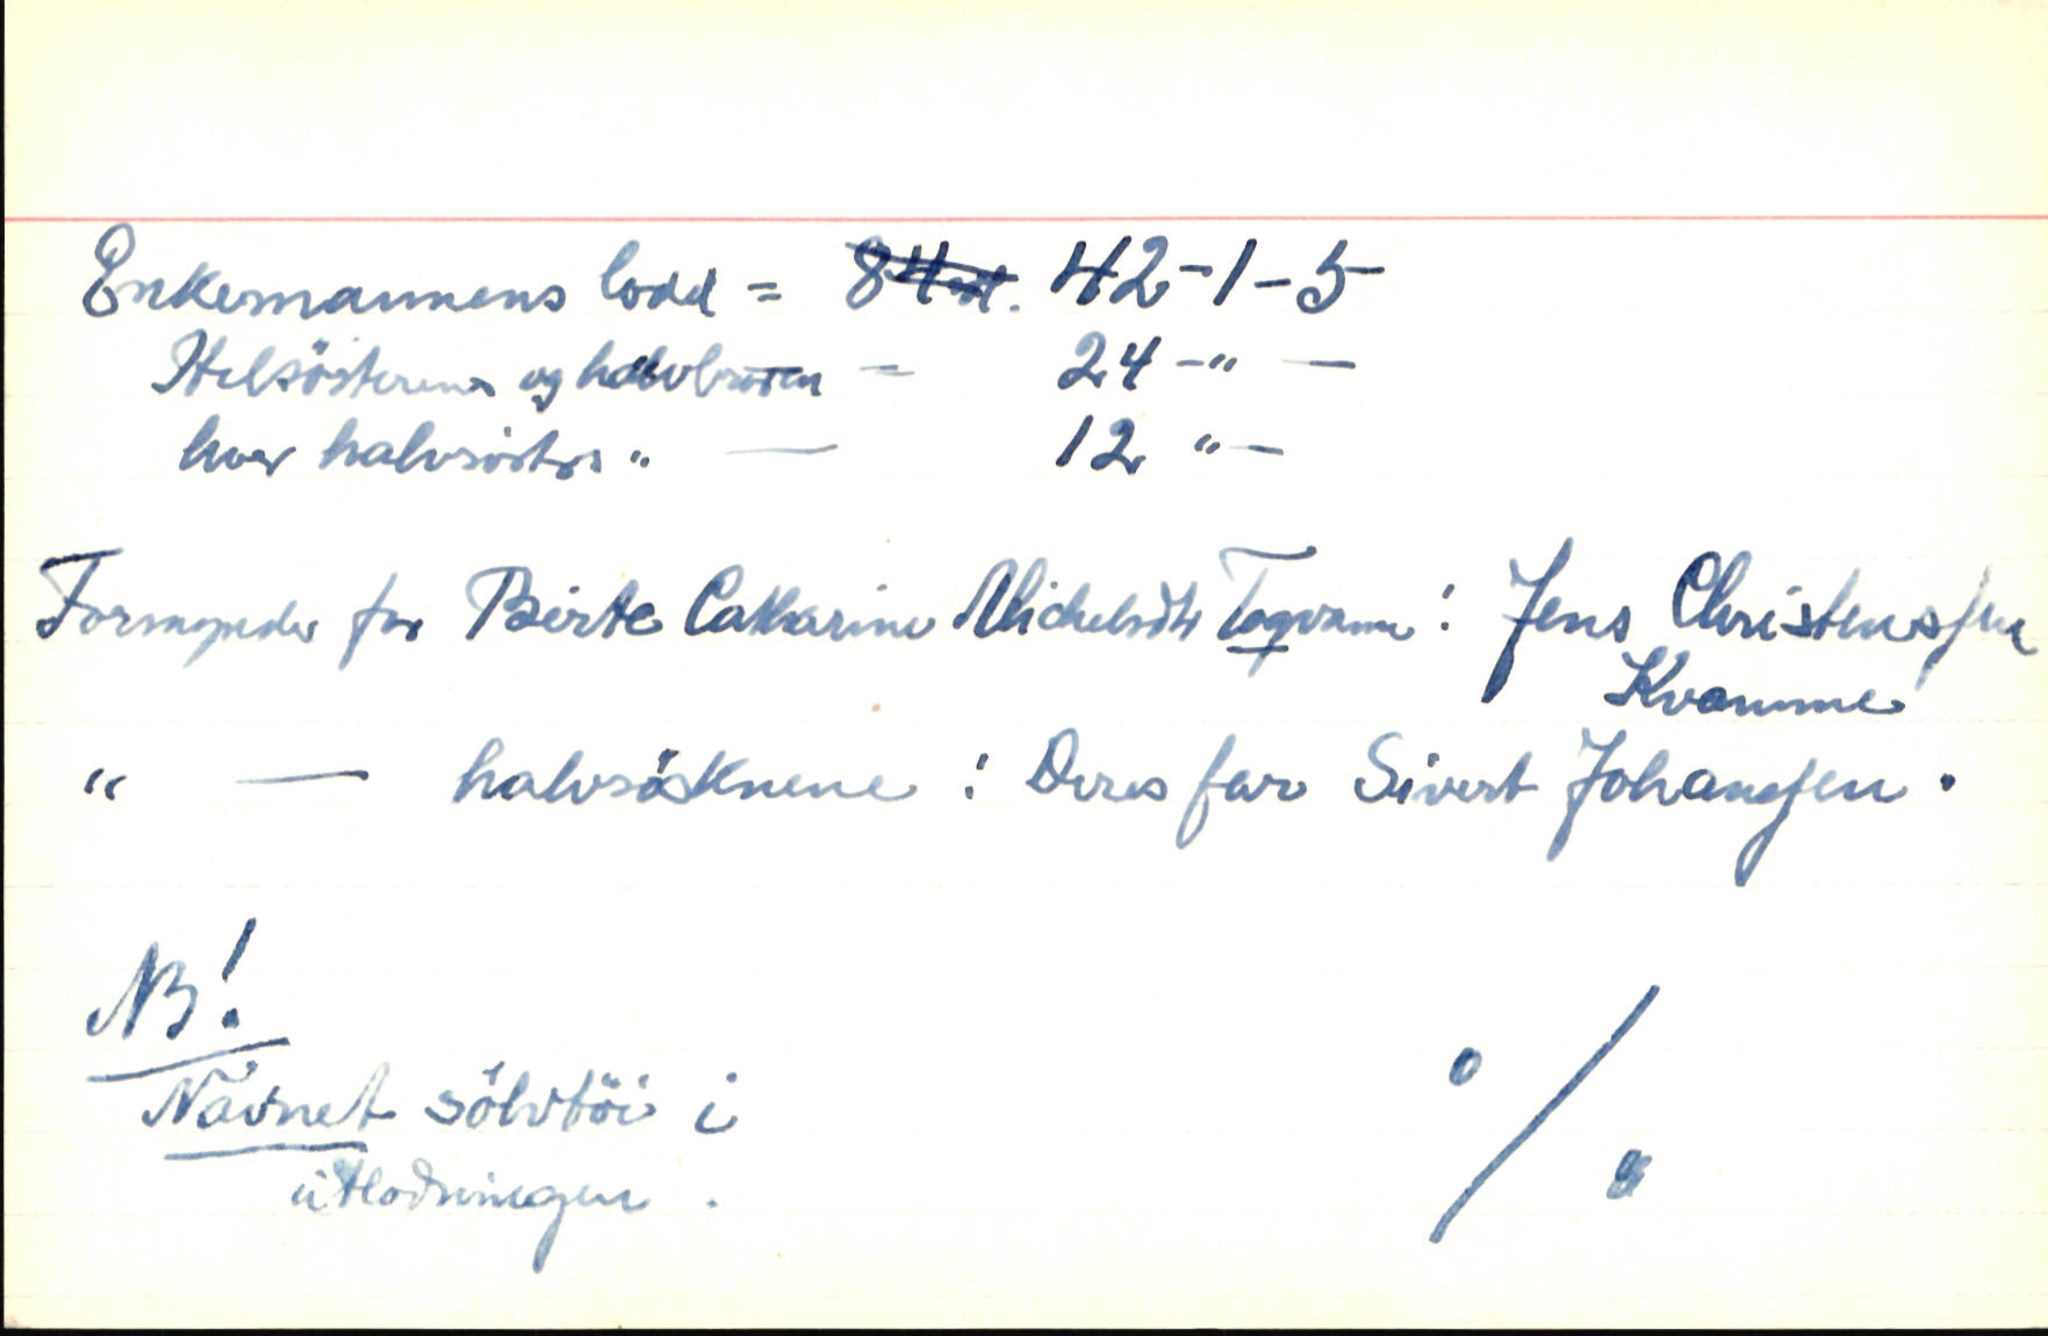 Enkemannens lodd = ~~84 rd.~~ 42-1-5
Helsösterens og halvbroren = 24 -" —
hver halvsösters " — 12 "-
Formynder for Birte Catharine Michelsdtr Togvamr: Jens Christensfen
Kvamme
" — halvsösknene: Deres far Sivert Johansfen.
NB!
Nävnet sölvtöi i
utlodningen.
%